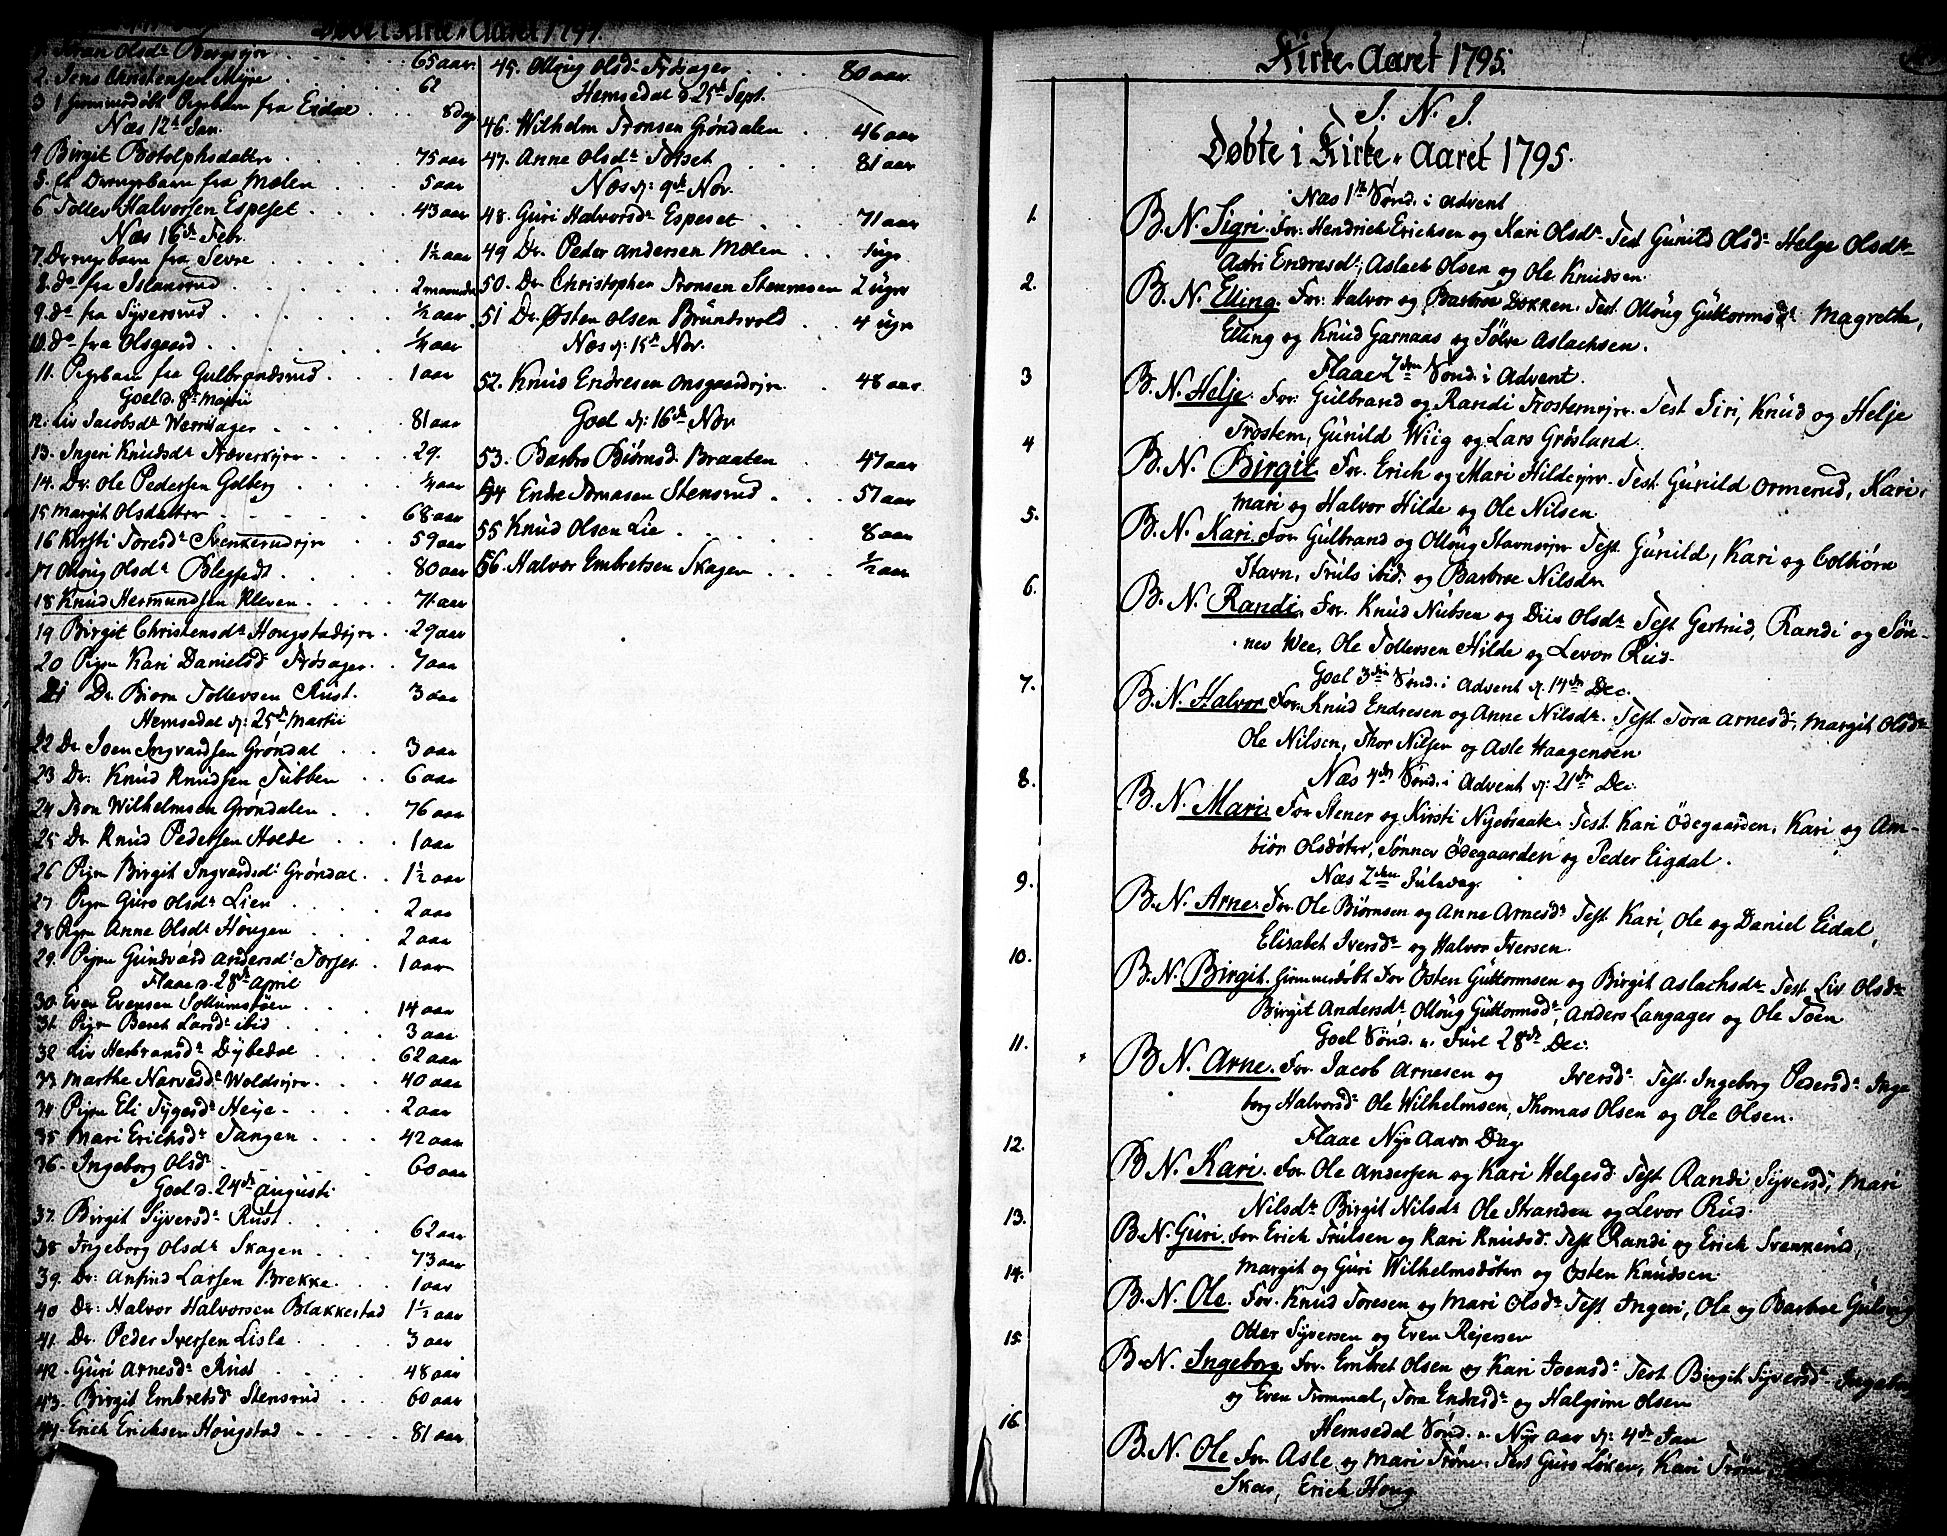 Døde i Kirke-Aaret 1794.
Olsd. Bergsejer 65 aar
2. Jens Christensen Mÿre 62
3 1 hjemmedøbt Pigebarn fra Eidal 8 dage
Næs 12te Jan.
4 Birgit Botolphsdatter 75 aar
5. et Drengebarn fra Mølen 5 aar
6 Tollev Halvorsen Espeset 43 aar
Næs 16de Febr.
7. Drengebarn fra Sevre 1½ aar
8. do fra Islansrud 2 maaneder
9. do fra Syversrud ½ aar
10. do fra Olsgaard ¼ aar
11. Pigebarn fra Gulbrandsrud 1 aar
Goel d. 8de Martii
12. Liv Jacobsdr Werrisager 81 aar
13. Ingeri Knudsdr 29.
14. Dr. Ole Pedersen Golberg ¼ aar
15 Margit Olsdatter 68 aar
16 Kirsti Toresdr Svenkerudejer 59 aar
17 Olloug Olsdr 80 aar
18 Knud Hermundsen Kleven 71 aar
19 Birgit Christensdr Hougstadejer 29 aar
20 Pigen Kari Danielsd. Frøsager 7 aar
21 Dr. Biørn Tollevsen Rust. 3 aar
Hemsedal d: 25de Martii
22 Dr Joen Ingvardsen Grøndal 3 aar
23 Dr. Knud Knudsen Tubben 6 aar
24 Tron Wilhelmsen Grøndalen 76 aar
25 Dr Knud Pedersen Holde 1 aar
26 Pigen Birgit Ingvardsdr Grøndal 1½ aar
27 Pigen Guro Olsdr Lien 2 aar
28 Pigen Anne Olsdr Hougen 2 aar
29. Pigen Gundvård Andersdr Torset 1 aar
Flaae d. 28de April
30. Even Evensen 14 aar
31. Pigen Berit Larsdr ibid 3 aar
32 Liv Herbransdr Dybedal 62 aar
33 Marthe Narvesdr Woldsejer 40 aar
34 Pigen Eli Tygesdr Heije 2 aar
35 Mari Erichsdr Tangen 42 aar
36. Ingeborg Olsdr 60 aar
Goel d. 24de Augusti
37 Birgit Syversdr Rust 62 aar
38 Ingeborg Olsdr Skagen 73 aar
39. Dr: Anfind Larsen Brekke 1 aar
40 Dr: Halvor Halvorsen Blakkestad 1½ aar
41. Dr. Peder Iversen Lisle 3 aar
42. Guri Arnesdr Rust 48 aar
43. Birgit Embretsdr Stensrud 60 aar
44. Erich Erichsen Hougstad 81 aar
45. Olloug Olsdr Frøsager 80 aar
Hemsedal d 25de Sept.
46. Wilhelm Tronsen Grøndalen 46 aar
47. Anne Olsdr Torset 81 aar
Næs d: 9de Nov.
48. Guri Halvorsdr Espeset 71 aar
49 Dr. Peder Andersen Mølen 1 uge
50. Dr. Christopher Tronsen Stenmoen 2 uger
51 Dr. Østen Olsen Brundsvold 4 uger
Næs d: 15de Nov.
52. Knud Endresen Onsgaardejer 48 aar
Goel d: 16de Nov
53. Barbro Biørnsd. Braaten 47 aar
54 Endre Tomasen Stensrud 57 aar
55 Knud Olsen Lie 8 aar
56. Halvor Embretsen Skagen ½ aar
Kirke-Aaret 1795.
I. N. J.
Døbte i Kirke-Aaret 1795.
Næs 1te Sønd. i Advent
1. B. N. Sigri. For. Hendrich Erichsen og Kari Olsdr. Test. Gunild Olsdr Helge Olsdr
Astri Endresdr, Aslach Olsen og Ole Knudsen.
2. B. N. Elling. For. Halvor og Barbroe Lokken. Test. Olloug Guttormsdr Magrethe,
Elling og Knud Garnaas og Sølve Aslachsen.
Flaae 2den Sønd. i Advent.
3 B. N. Helje. For: Gulbrand og Randi Trostemejer. Test Siri, Knud og Helje
Trostem, Gunild Wiig og Lars Grøsland.
4 B. N. Birgit For. Erich og Mari Hildeejer. Test. Gunild Ormerud, Kari,
Mari og Halvor Hilde og Ole Nilsen
5. B. N. Kari. For Gulbrand og Olloug Stavnejer Test. Gunild, Kari og Colbiørn
Stavn, Truls ibid. og Barbroe Nilsdr
6. B. N. Randi. For. Knud Nubsen og Diis Olsdr Test. Gertrud, Randi og Søn-
nev Wee, Ole Tollevsen Hilde og Levor Rud.
Goel 3die Sønd. i Advent d. 14de Dec.
7. B. N. Halvor For. Knud Endresen og Anne Nilsdr. Test. Tora Arnesdr, Margit Olsdr
Ole Nilsen, Thor Nilsen og Asle Haagensen
Næs 4de Sønd. i Advent d: 21de Dec.
8. B. N. Mari. For Stener og Kirsti Nyebraak. Test. Kari Ödegaarden, Kari og Am-
biør Olsdøter, Sønnev Ödegaarden og Peder Eigdal.
Næs 2den Juledag.
9. B. N. Arne. For. Ole Biørnsen og Anne Arnesdr Test. Kari, Ole og Daniel Eidal,
Elisabet Iversdr og Halvor Iversen.
10. B. N. Birgit. hjemmedøbt For Østen Guttormsen og Birgit Aslachsdr Test. Liv Olsdr
Birgit Andersdr Olloug Guttormsdr, Anders Langager og Ole Toen
Goel Sønd. n. Juel 28de Dec.
11. B. N. Arne. For. Jacob Arnesen og Iversdr Test. Ingeborg Pedersdr Inge
borg Halvorsdr Ole Wilhelmsen, Thomas Olsen og Ole Olsen.
Flaae Nye Aars Dag
12. B. N. Kari. For. Ole Andersen og Kari Helgesd Test. Randi Syversdr, Mari
Nilsdr Birgit Nilsdr Ole Stranden og Levor Rud.
13. B. N. Guri. For. Erich Trulsen og Kari Knudsd. Test Randi og Erich Svenkerud,
Margit og Guri Wilhelmsdøtter og Østen Knudsen.
14. B. N. Ole. For. Knud Toresen og Mari Olsdr Test Ingeri, Ole og Barbroe
Otter Syversen og Even Rejersen
15. B. N. Ingeborg For. Embret Olsen og Kari Joensdr Test Birgit Syversdr Ingeborg
og Even Trommal, Tora Endresdr og Halgrim Olsen
Hemsedal Sønd. n. Nye aar d: 4de Jan
16. B. N. Ole For Asle og Mari Trøim. Test Guro Løken, Kari
Skar, Erich Houg